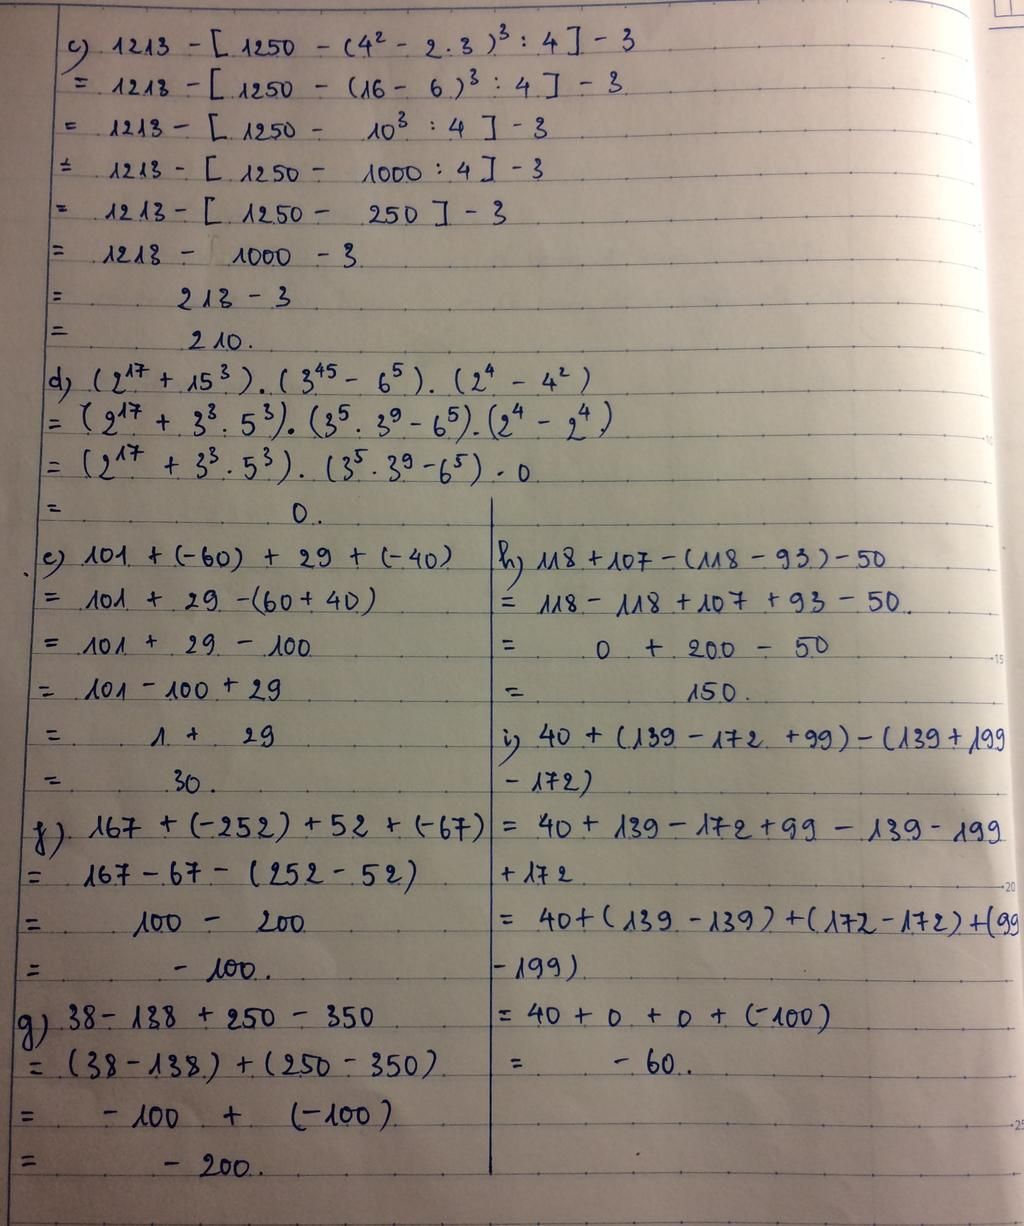 c) 1213 - [ 1250 - (4² - 2.3)³ : 4 ] - 3
= 1213 - [ 1250 - (16 - 6)³ : 4 ] - 3
= 1213 - [ 1250 - 10³ : 4 ] - 3
= 1213 - [ 1250 - 1000 : 4 ] - 3
= 1213 - [ 1250 - 250 ] - 3
= 1213 - 1000 - 3
= 213 - 3
= 210.
d) (2¹⁷ + 15³).(3⁴⁵ - 6⁵).(2⁴ - 4²)
= (2¹⁷ + 3³.5³).(3⁵.3⁹ - 6⁵).(2⁴ - 2⁴)
= (2¹⁷ + 3³.5³).(3⁵.3⁹ - 6⁵).0
= 0.
e) 101 + (-60) + 29 + (-40)
= 101 + 29 -(60 + 40)
= 101 + 29 - 100
= 101 - 100 + 29
= 1 + 29
= 30.
f) 167 + (-252) + 52 + (-67)
= 167 - 67 - (252 - 52)
= 100 - 200
= - 100.
g) 38 - 138 + 250 - 350
= (38 - 138) + (250 - 350)
= - 100 + (-100)
= - 200.
h) 118 + 107 - (118 - 93) - 50
= 118 - 118 + 107 + 93 - 50.
= 0 + 200 - 50
= 150.
i) 40 + (139 - 172 + 99) - (139 + 199
- 172)
= 40 + 139 - 172 + 99 - 139 - 199
+ 172
= 40 + (139 - 139) + (172 - 172) + (99
- 199)
= 40 + 0 + 0 + (-100)
= - 60.
15
20
25